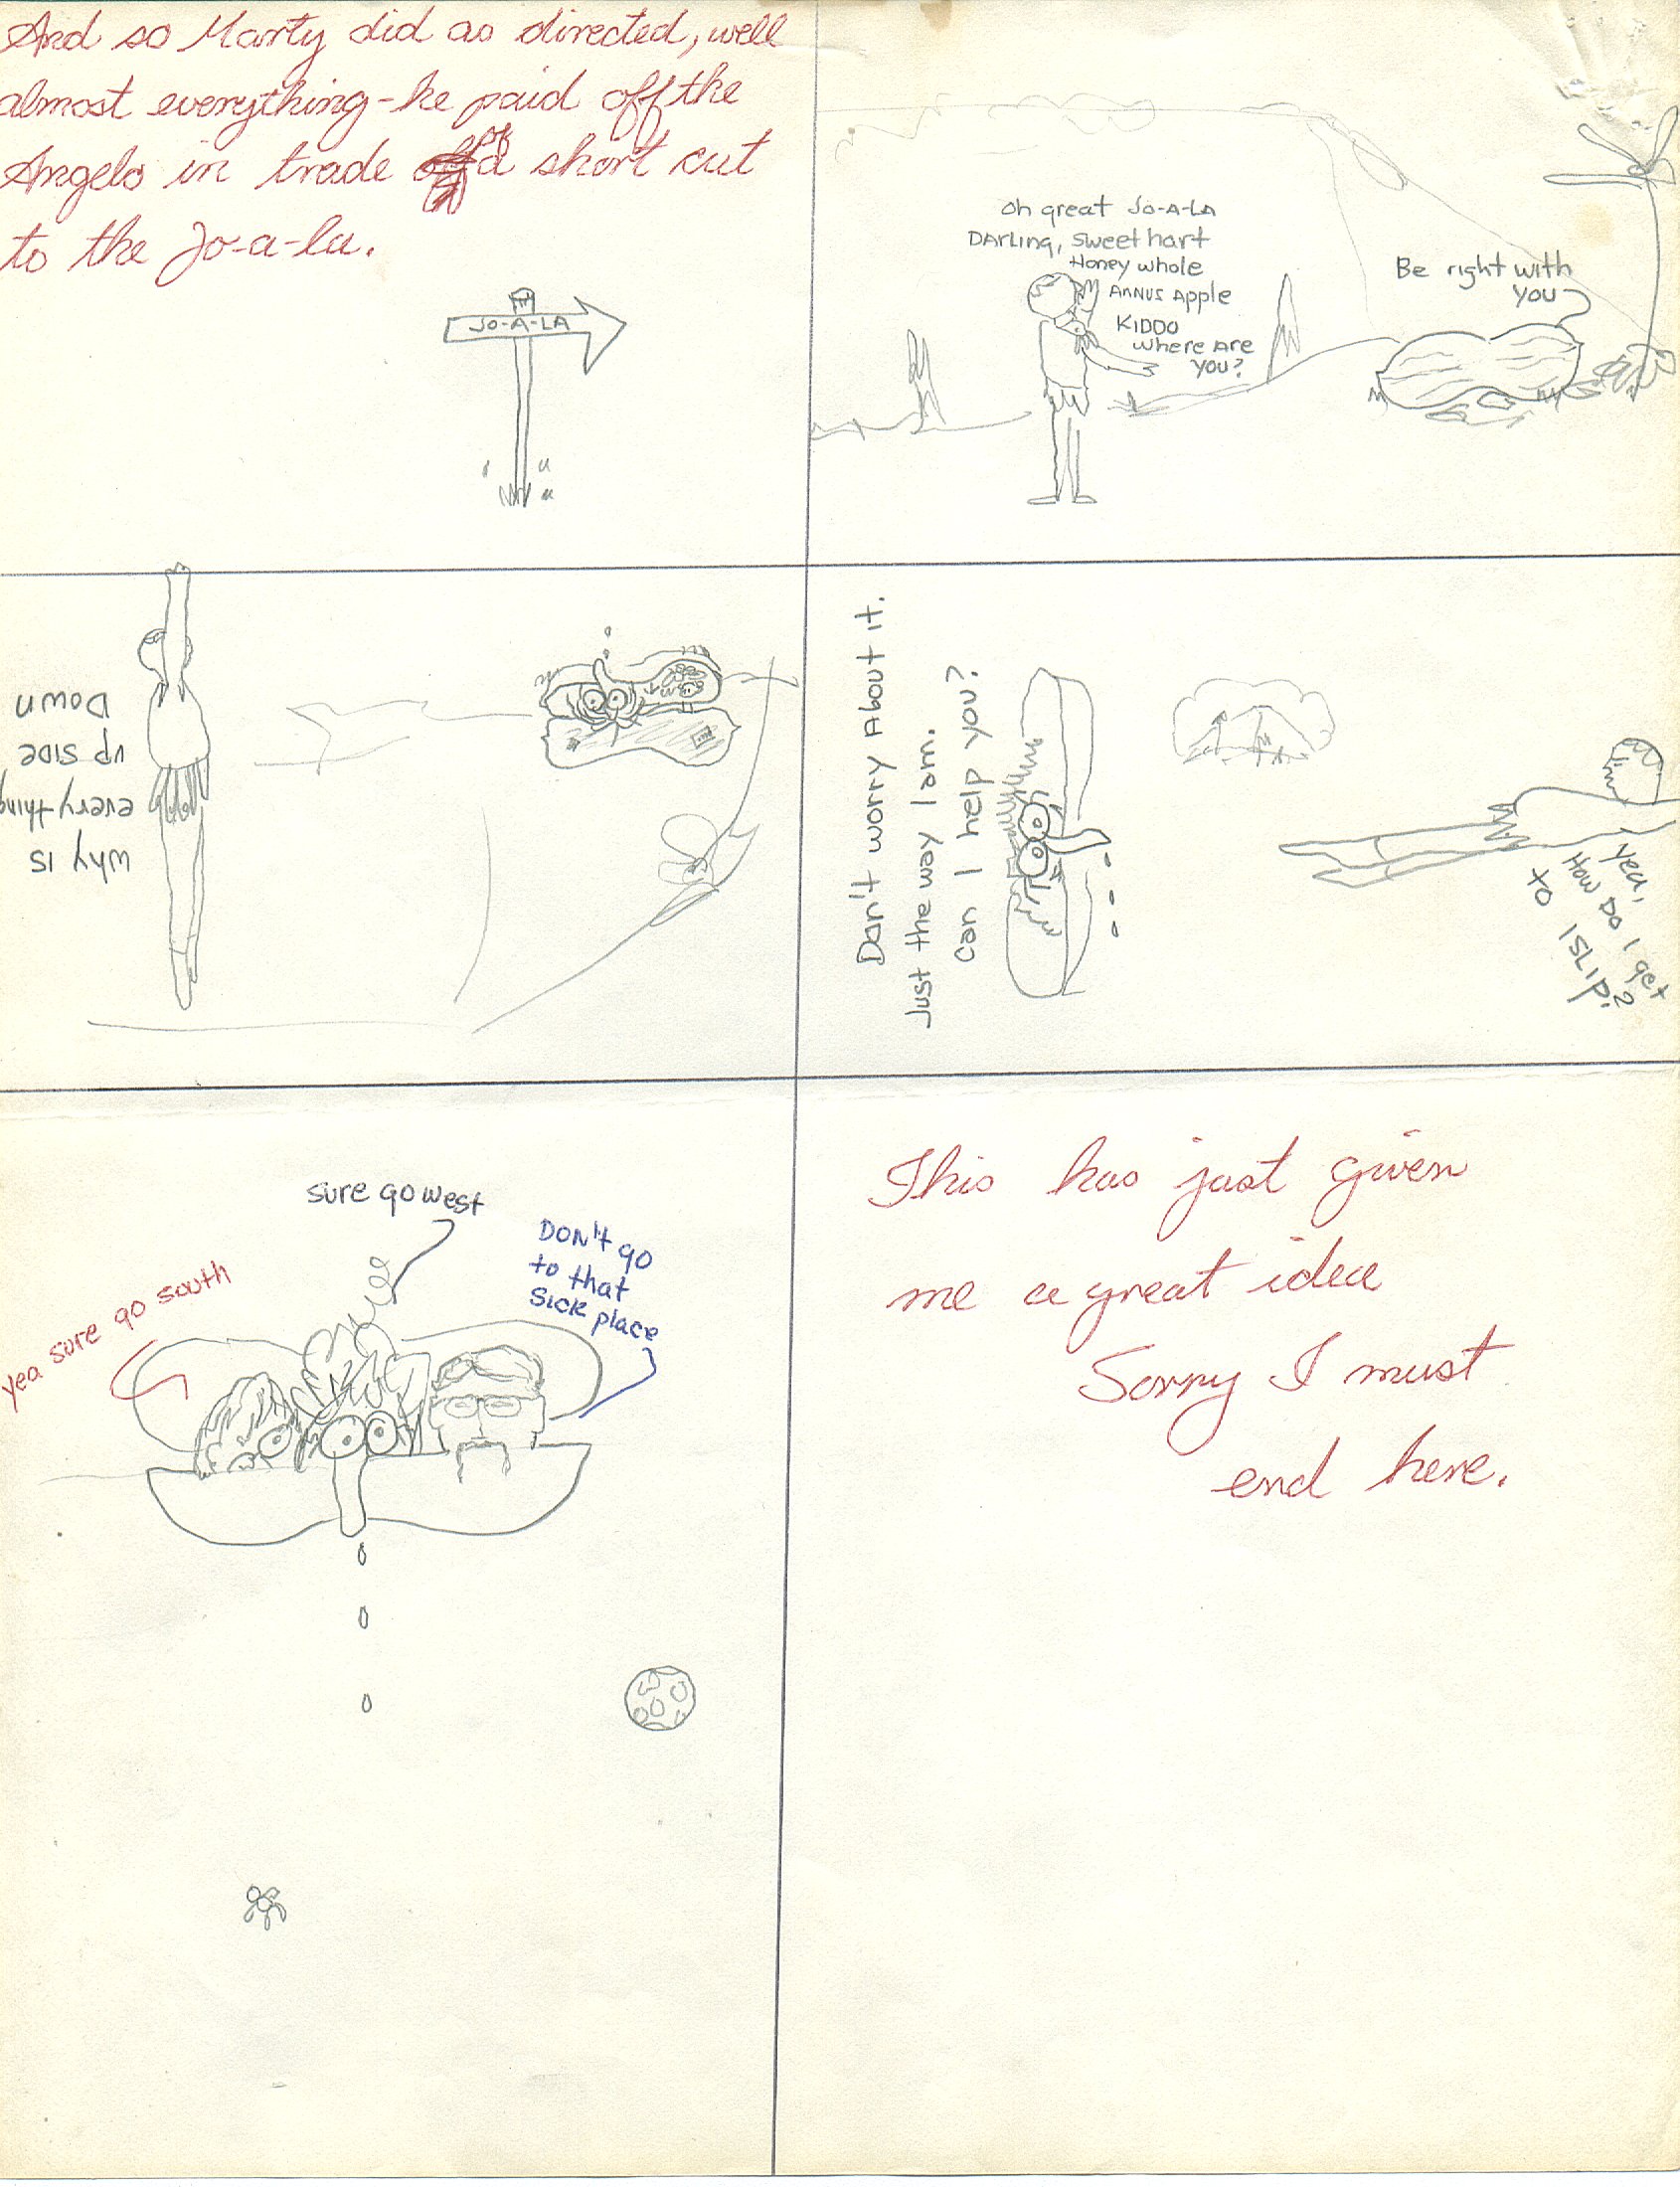 And so Marty did as directed, well
almost everything - he paid off the
Angelo in trade of a short cut
to the Jo-a-la.
JO-A-LA
Oh great JO-A-LA
DArLing, sweet hart
Honey whole
ANNUS Apple
KIDDO
where Are
you?
Be right with
you
why is
every thing
up side
Down
Don't worry About it.
Just the way I am.
Can I help you?
yea,
How Do I get
to ISLIP?
sure go west
yea sure go south
DON't go
to that
Sick place
This has just given
me a great idea
Sorry I must
end here.